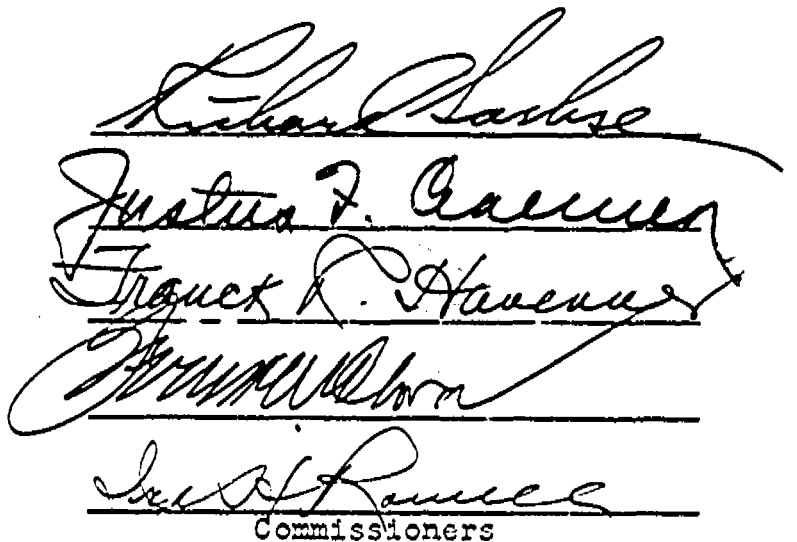 Richard Sachse
Justus F. Craemer
Franck R. Havenner
Ira H. Rowell
Commissioners